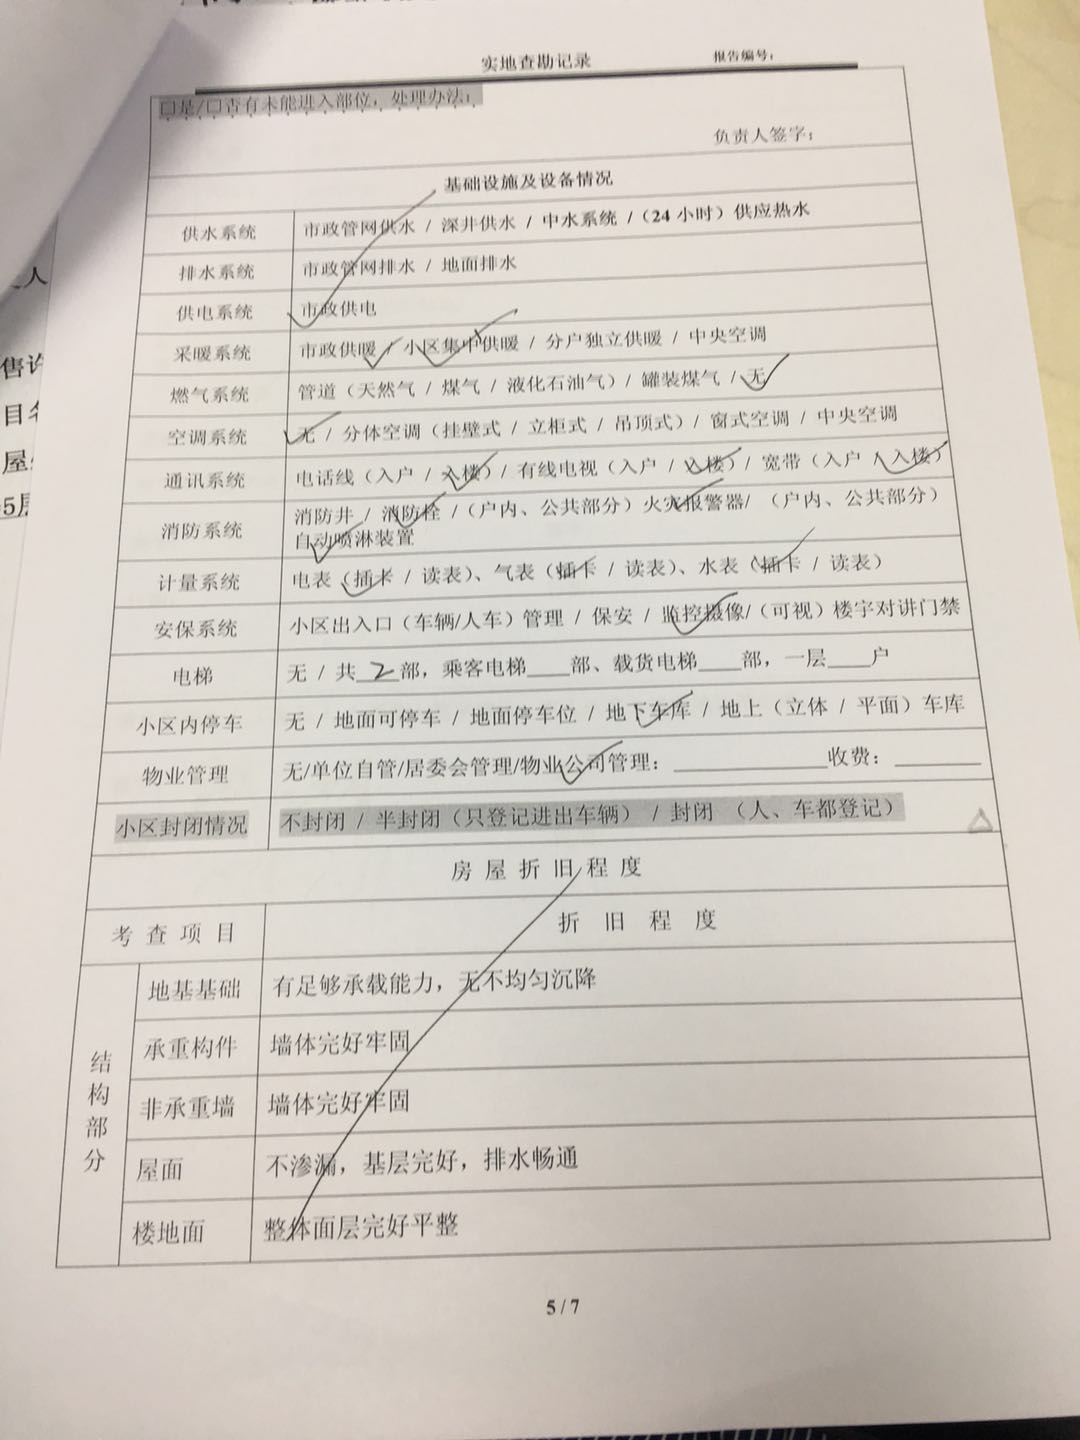 实地查勘记录 报告编号：
□是/□否有未能进入部位，处理办法：
负责人签字：
基础设施及设备情况
供水系统 市政管网供水 / 深井供水 / 中水系统 /（24 小时）供应热水
排水系统 市政管网排水 / 地面排水
供电系统 市政供电
采暖系统 市政供暖 / 小区集中供暖 / 分户独立供暖 / 中央空调
燃气系统 管道（天然气 / 煤气 / 液化石油气）/ 罐装煤气 / 无
空调系统 无 / 分体空调（挂壁式 / 立柜式 / 吊顶式）/ 窗式空调 / 中央空调
通讯系统 电话线（入户 / 入楼）/ 有线电视（入户 / 入楼）/ 宽带（入户 / 入楼）
消防系统 消防井 / 消防栓 /（户内、公共部分）火灾报警器/ （户内、公共部分）
自动喷淋装置
计量系统 电表（插卡 / 读表）、气表（插卡 / 读表）、水表（插卡 / 读表）
安保系统 小区出入口（车辆/人车）管理 / 保安 / 监控摄像/（可视）楼宇对讲门禁
电梯 无 / 共 2 部，乘客电梯____部、载货电梯____部，一层____户
小区内停车 无 / 地面可停车 / 地面停车位 / 地下车库 / 地上（立体 / 平面）车库
物业管理 无/单位自管/居委会管理/物业公司管理：______________收费：________
小区封闭情况 不封闭 / 半封闭（只登记进出车辆） / 封闭 （人、车都登记）
房 屋 折 旧 程 度
考 查 项 目 折 旧 程 度
结构部分
地基基础 有足够承载能力，无不均匀沉降
承重构件 墙体完好牢固
非承重墙 墙体完好牢固
屋面 不渗漏，基层完好，排水畅通
楼地面 整体面层完好平整
5 / 7
人
售许
目名
屋
5层